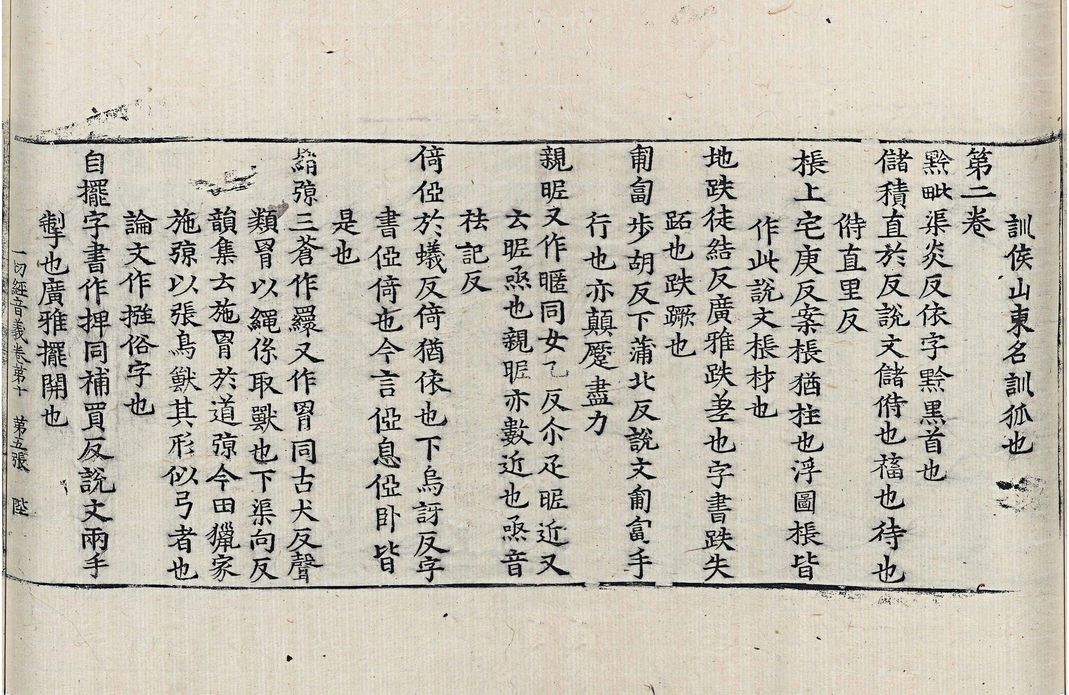 訓侯山東名訓狐也
第二卷
黔毗渠炎反依字黔黑首也
儲積直於反說文儲偫也䅵也待也
偫直里反
棖上宅庚反案棖猶柱也浮圖棖皆
作此說文棖材也
地跌徒結反廣雅跌差也字書跌失
跖也跌蹶也
匍匐步胡反下蒲北反說文匍匐手
行也亦顛蹙盡力
親昵又作暱同女乙反尒疋昵近又
云昵亟也親昵亦數近也亟音
袪記反
倚俹於蟻反倚猶依也下烏訝反字
書俹倚也今言俹息俹卧皆
是也
弶三蒼作繯又作罥同古犬反聲
類罥以繩係取獸也下渠向反
韻集云施罥於道弶今田獵家
施弶以張鳥獸其形似弓者也
論文作摾俗字也
自擺字書作捭同補買反說文兩手
擊也廣雅擺開也
一切經音義卷第十 第五張 陛